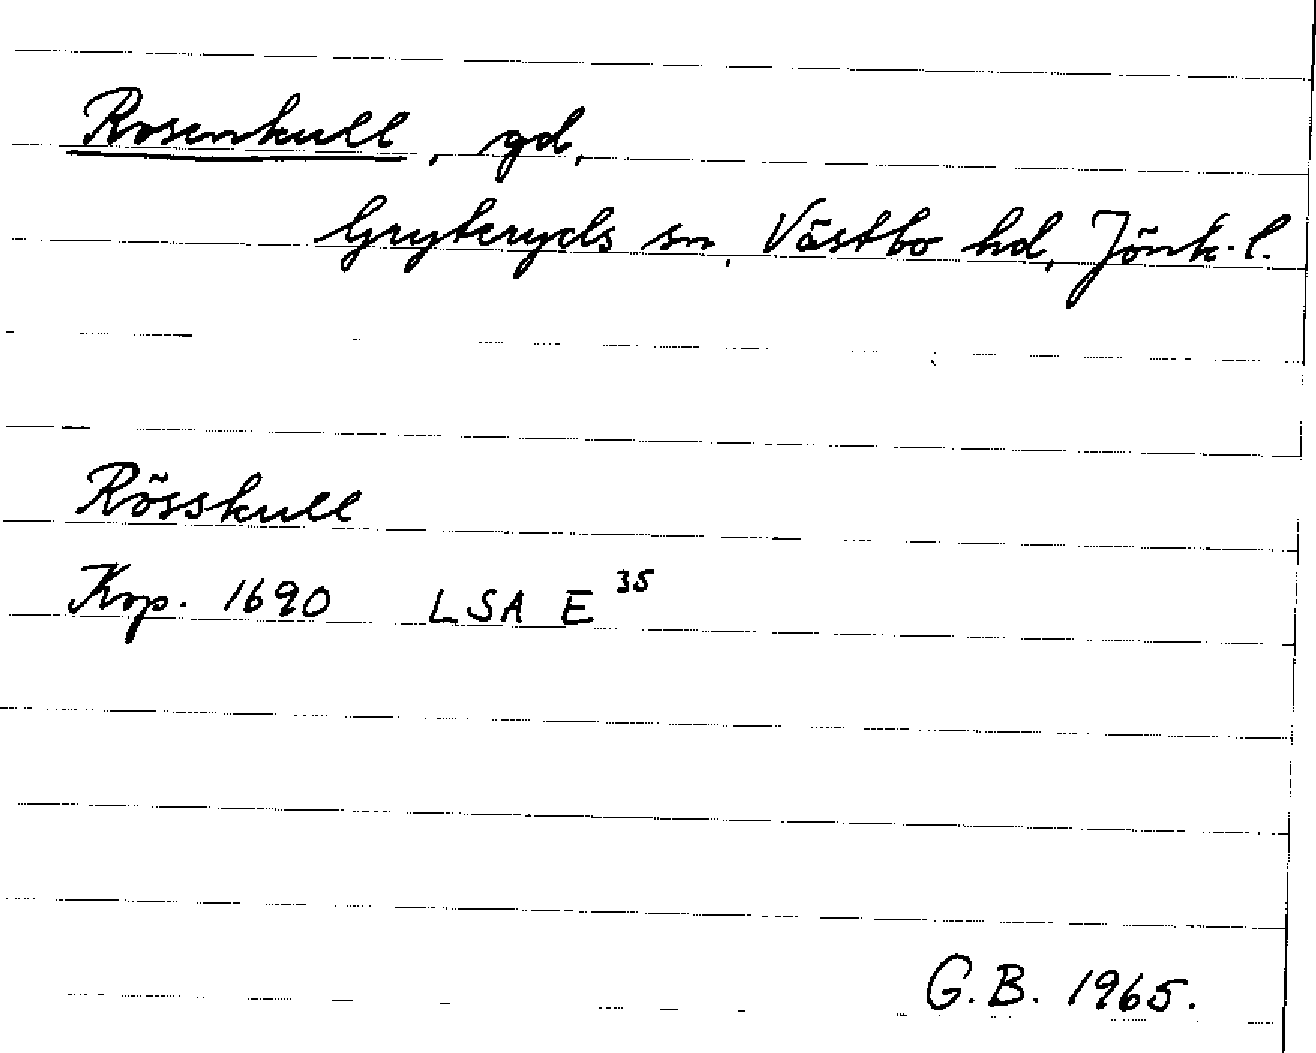 Rosenkull, gd,
Gryteryds sn, Västbo hd, Jönk. l.
Rösskull
Kop. 1690 LSA E 35
G.B. 1965.